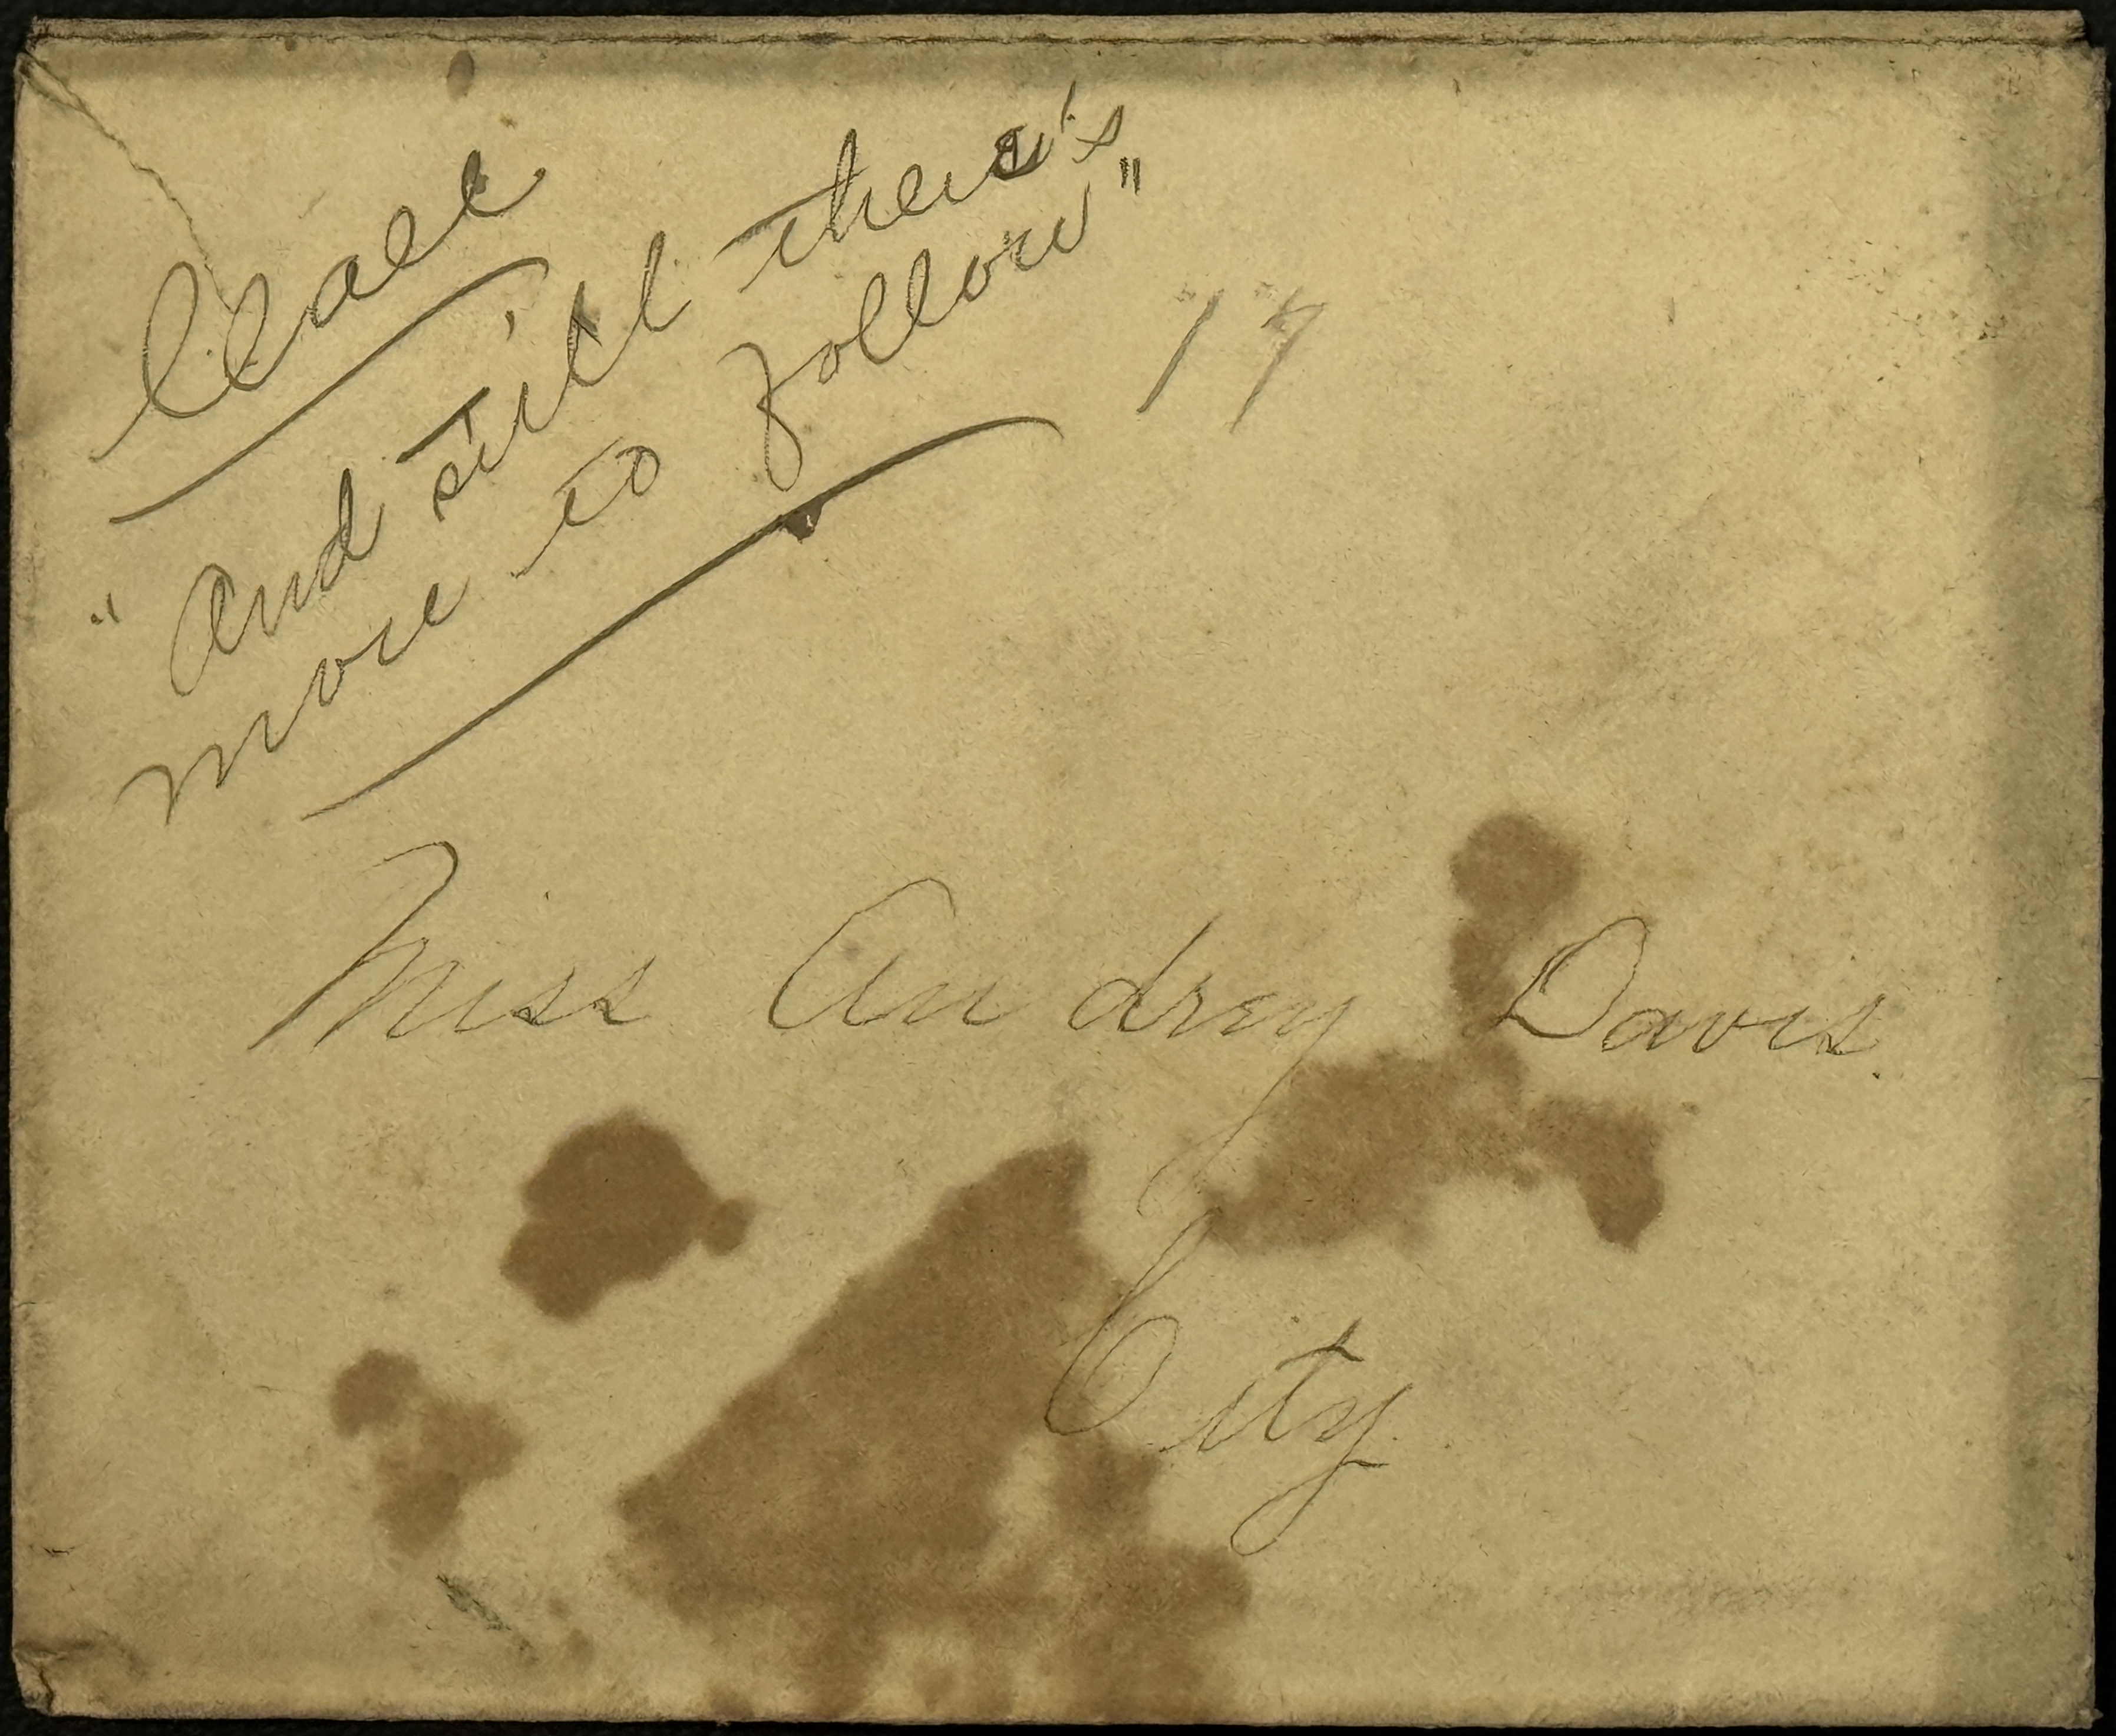 "And still there's
more to follow"
17
Miss Audrey Davis.
City